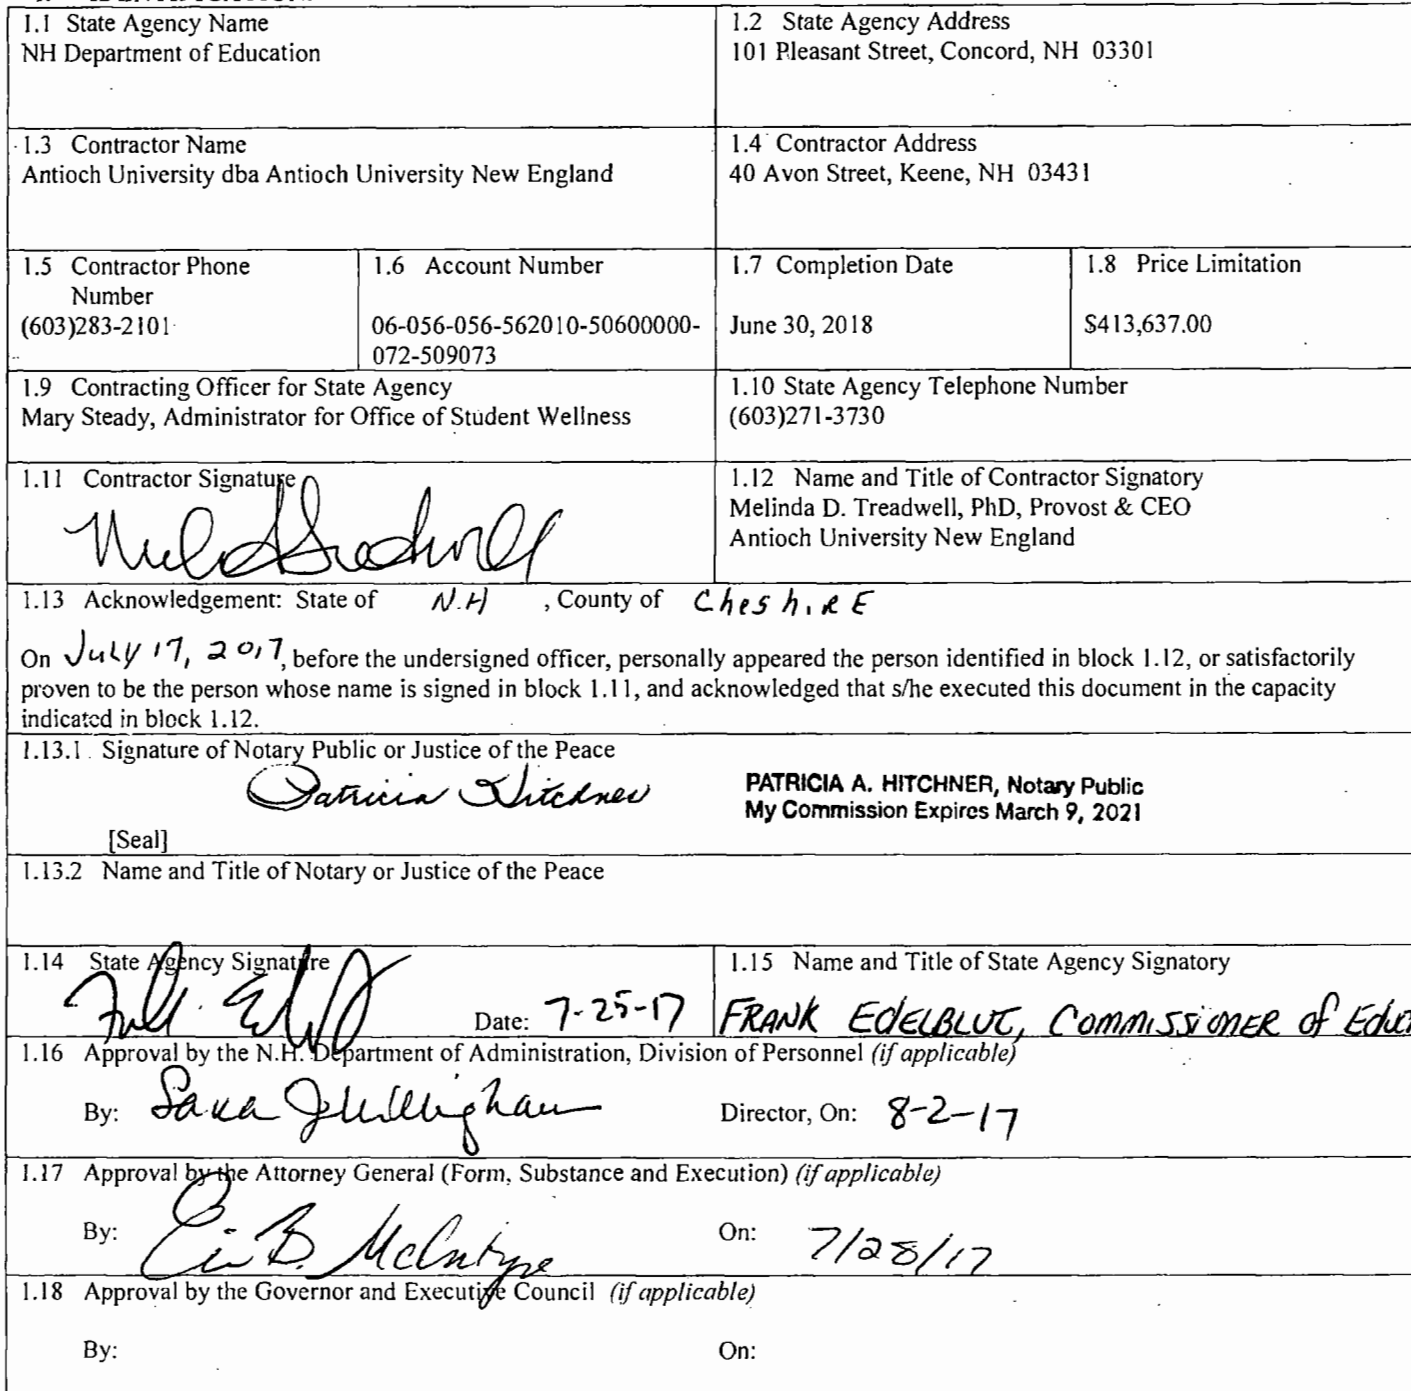 1.1 State Agency Name
NH Department of Education
1.2 State Agency Address
101 Pleasant Street, Concord, NH 03301
1.3 Contractor Name
Antioch University dba Antioch University New England
1.4 Contractor Address
40 Avon Street, Keene, NH 03431
1.5 Contractor Phone
Number
(603)283-2101
1.6 Account Number
06-056-056-562010-50600000-
072-509073
1.7 Completion Date
June 30, 2018
1.8 Price Limitation
$413,637.00
1.9 Contracting Officer for State Agency
Mary Steady, Administrator for Office of Student Wellness
1.10 State Agency Telephone Number
(603)271-3730
1.11 Contractor Signature
1.12 Name and Title of Contractor Signatory
Melinda D. Treadwell, PhD, Provost & CEO
Antioch University New England
1.13 Acknowledgement: State of N.H , County of CheshiRE
On July 17, 2017, before the undersigned officer, personally appeared the person identified in block 1.12, or satisfactorily
proven to be the person whose name is signed in block 1.11, and acknowledged that s/he executed this document in the capacity
indicated in block 1.12.
1.13.1 Signature of Notary Public or Justice of the Peace
Patricia Hitchner
PATRICIA A. HITCHNER, Notary Public
My Commission Expires March 9, 2021
[Seal]
1.13.2 Name and Title of Notary or Justice of the Peace
1.14 State Agency Signature
Date: 7-25-17
1.15 Name and Title of State Agency Signatory
FRANK EDELBLUT, COMMISSIONER of Educ
1.16 Approval by the N.H. Department of Administration, Division of Personnel (if applicable)
By: Director, On: 8-2-17
1.17 Approval by the Attorney General (Form, Substance and Execution) (if applicable)
By: B. McIntyre On: 7/28/17
1.18 Approval by the Governor and Executive Council (if applicable)
By: On: